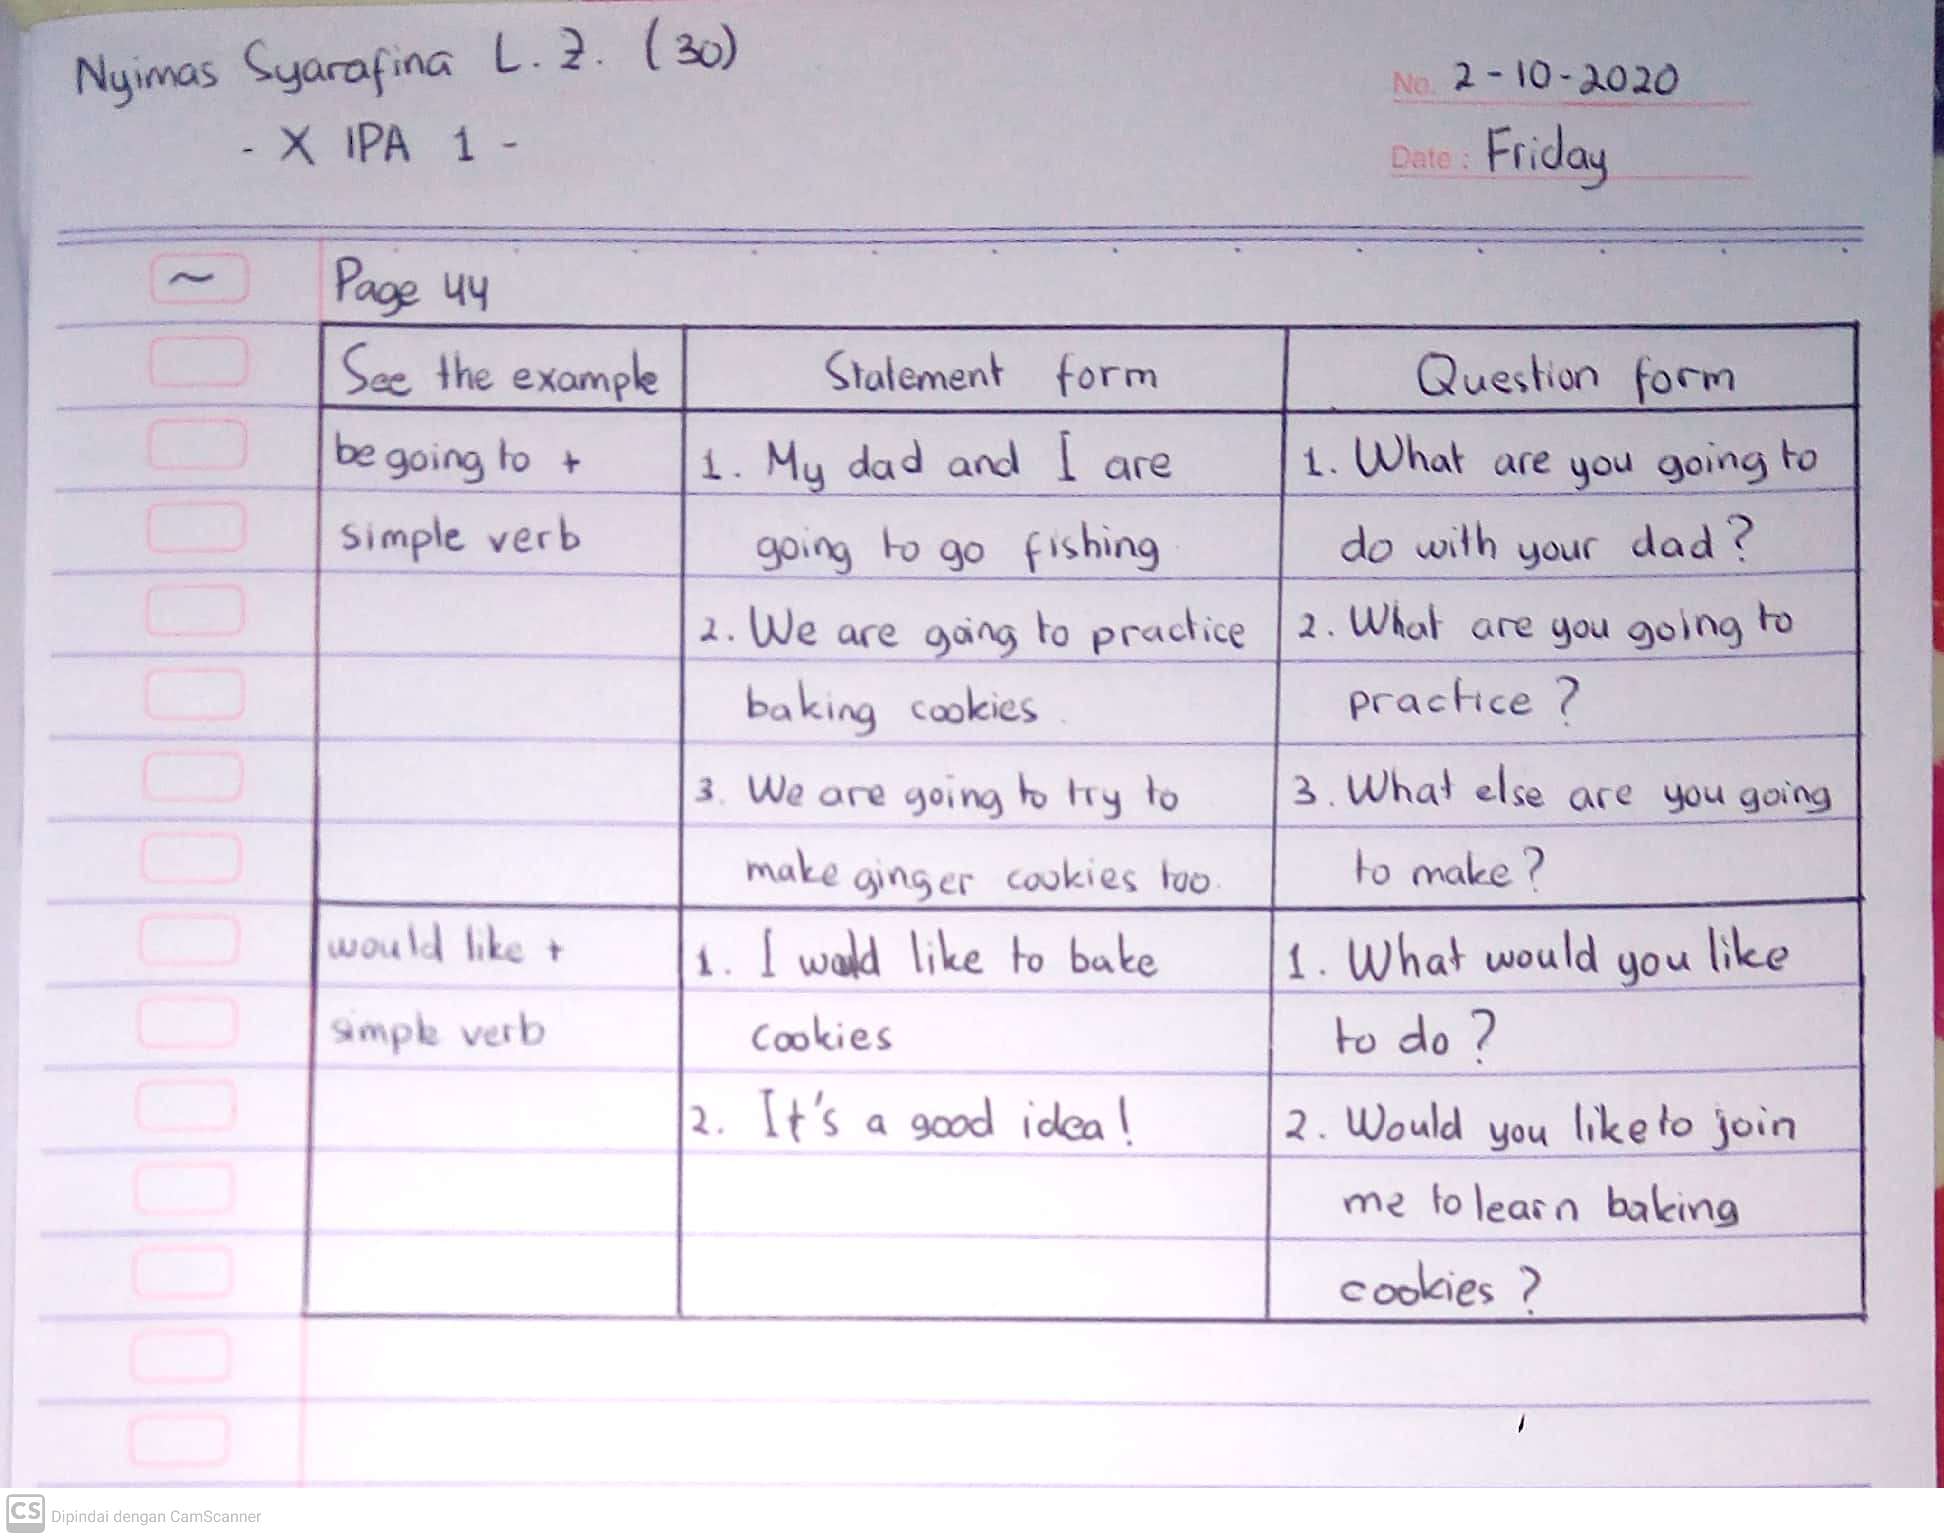 Nyimas Syarafina L. Z. (30)
- X IPA 1 -
No. 2-10-2020
Date : Friday
~ Page 44
See the example Statement form Question form
be going to + 1. My dad and I are 1. What are you going to
simple verb going to go fishing do with your dad?
2. We are going to practice 2. What are you going to
baking cookies. practice?
3. We are going to try to 3. What else are you going
make ginger cookies too. to make?
would like + 1. I would like to bake 1. What would you like
simple verb cookies to do?
2. It's a good idea! 2. Would you like to join
me to learn baking
cookies?
CS Dipindai dengan CamScanner